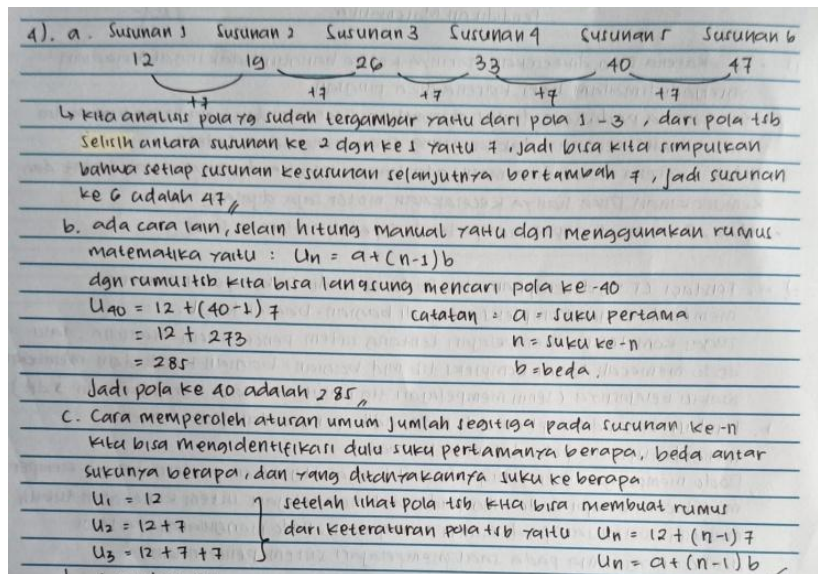 4). a. Susunan 1 Susunan 2 Susunan 3 Susunan 4 Susunan 5 Susunan 6
12 19 26 33 40 47
+7 +7 +7 +7 +7
↳ kita analisis pola yg sudah tergambar yaitu dari pola 1-3, dari pola tsb
selisih antara susunan ke 2 dgn ke 1 yaitu 7, jadi bisa kita simpulkan
bahwa setiap susunan kesusunan selanjutnya bertambah 7, jadi susunan
ke 6 adalah 47 //
b. ada cara lain, selain hitung manual yaitu dgn menggunakan rumus
matematika yaitu : Un = a+(n-1)b
dgn rumus tsb kita bisa langsung mencari pola ke-40
U40 = 12 +(40-1) 7 catatan : a = suku pertama
= 12 + 273 n = suku ke-n
= 285 b = beda.
Jadi pola ke 40 adalah 285 //
C. Cara memperoleh aturan umum jumlah segitiga pada susunan ke-n
kita bisa mengidentifikasi dulu suku pertamanya berapa, beda antar
sukunya berapa, dan yang ditanyakannya suku ke berapa
U1 = 12 setelah lihat pola tsb kita bisa membuat rumus
U2 = 12+7 dari keteraturan pola tsb yaitu Un = 12 + (n-1) 7
U3 = 12 + 7 + 7 Un = a + (n-1) b